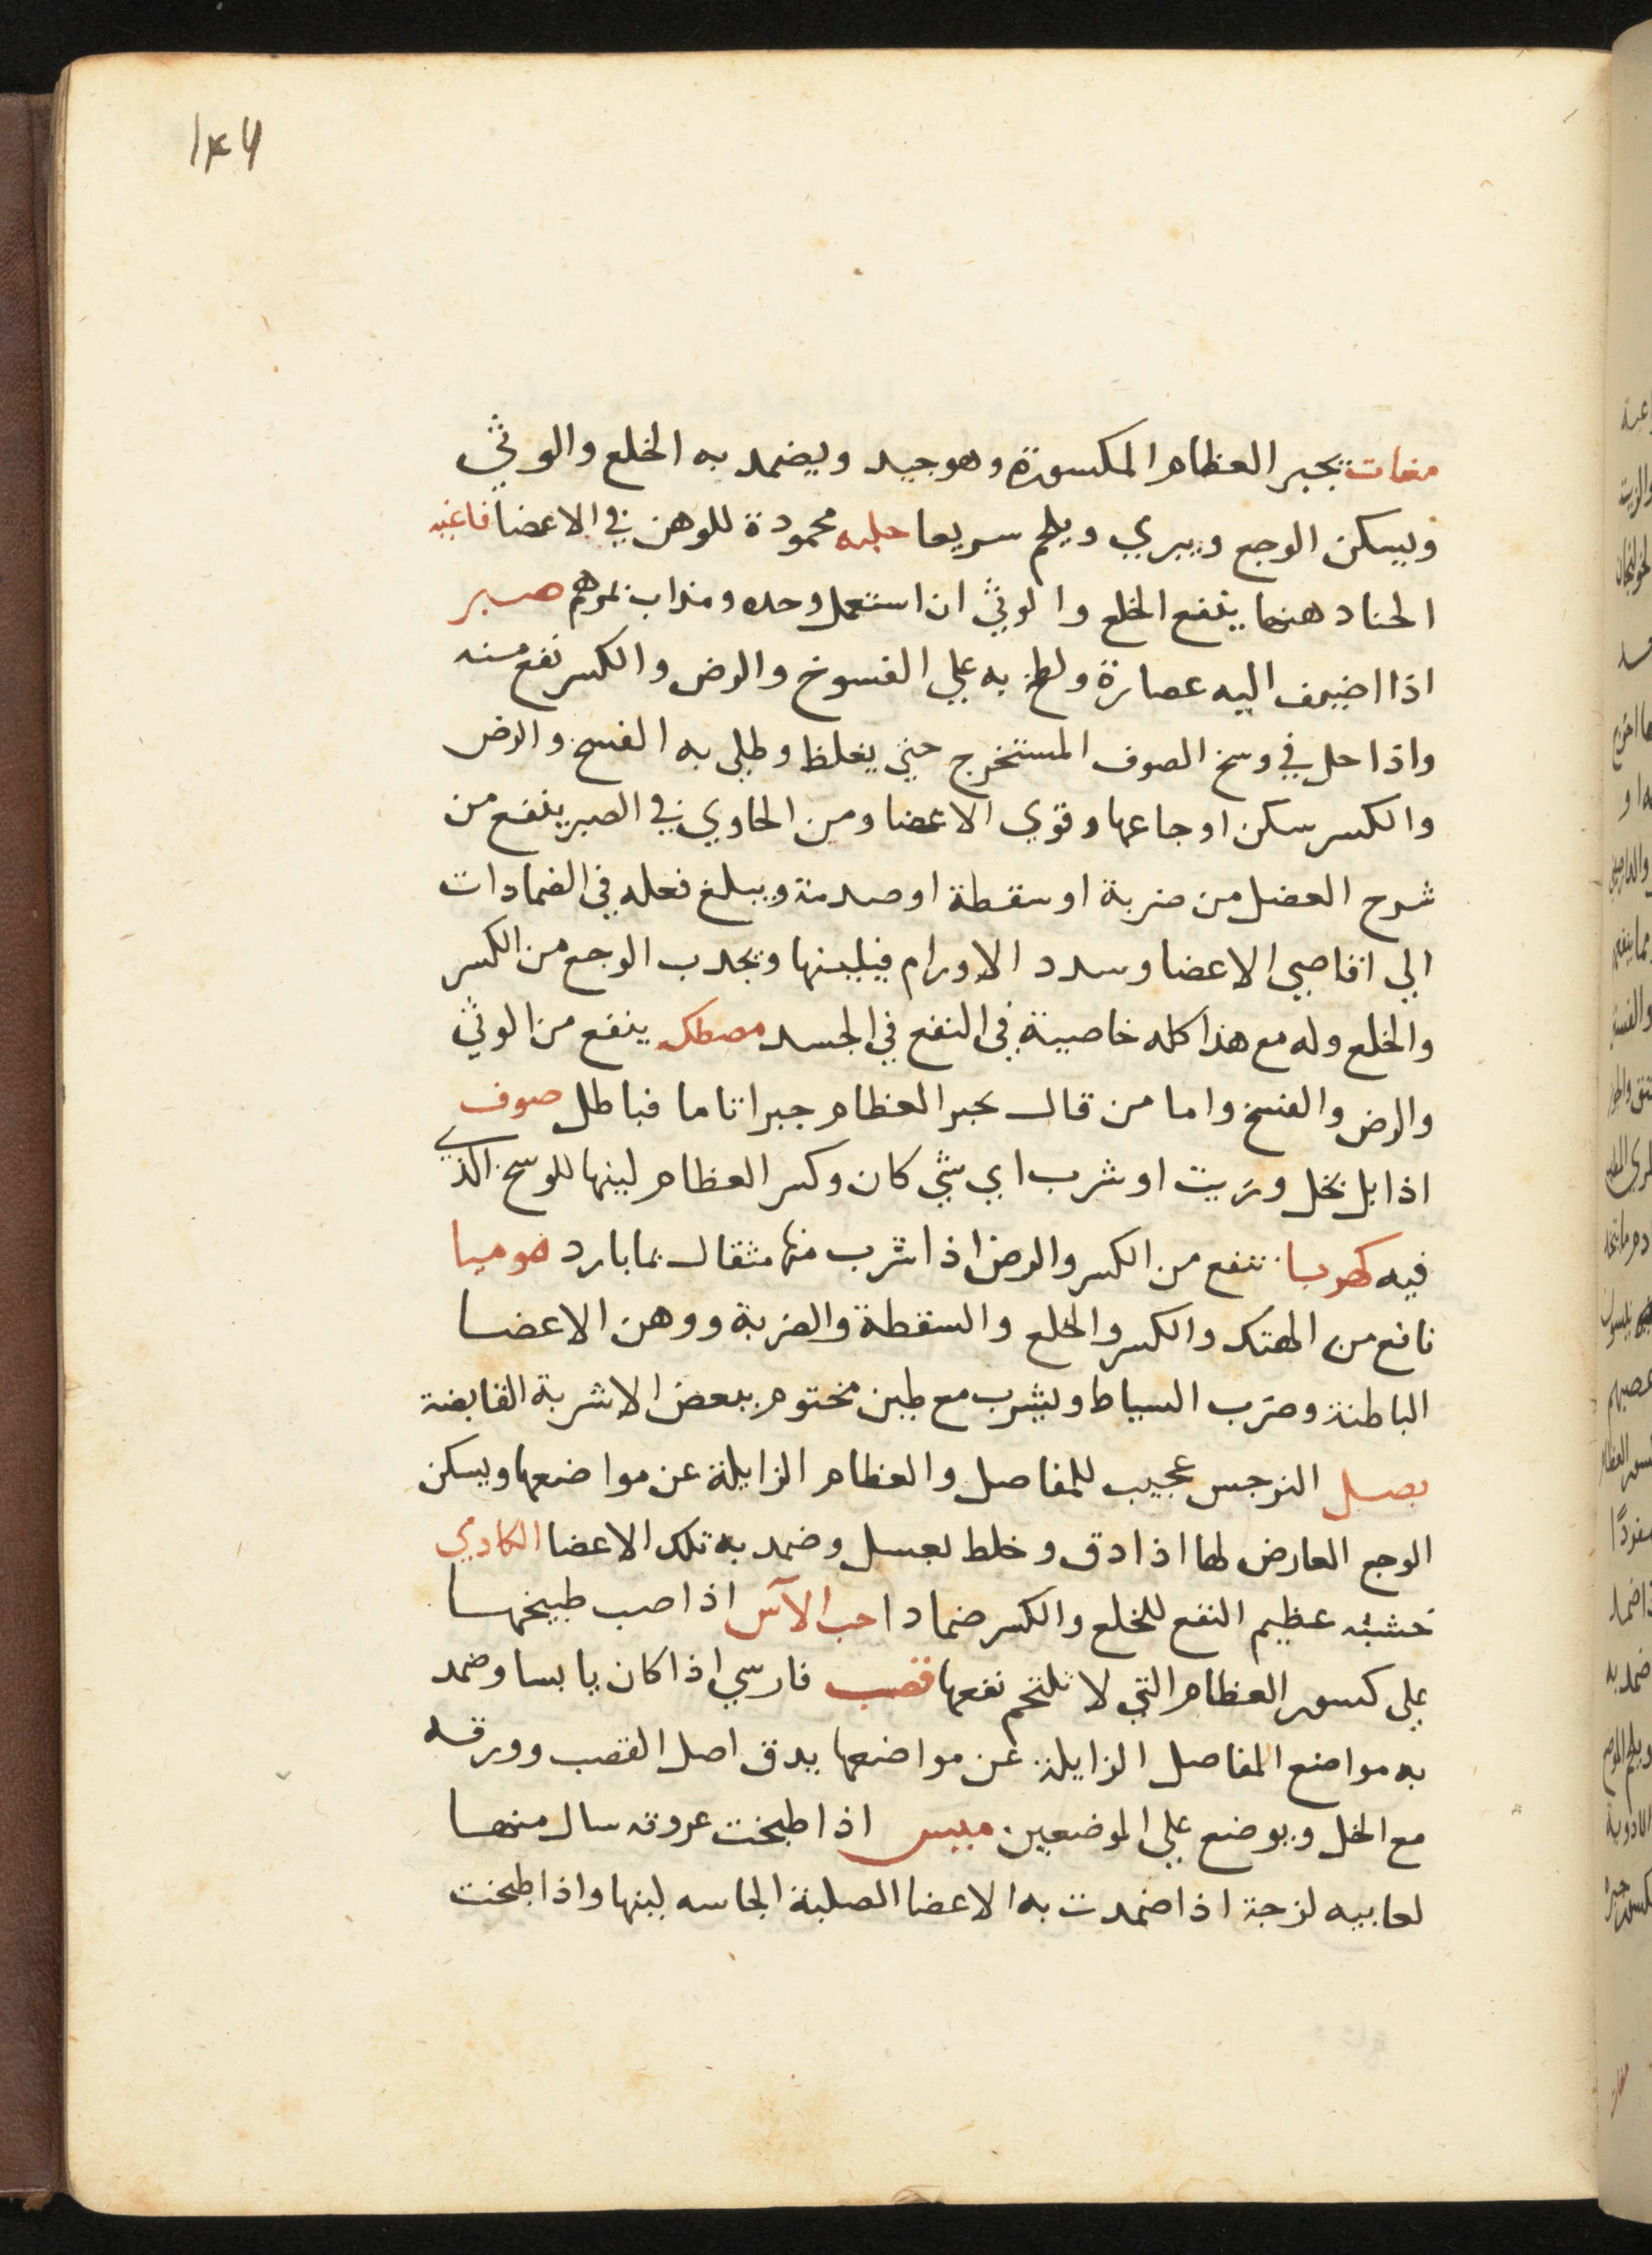 ١٤٦
مغات يجبر العظام المكسورة وهو جيد ويضمد به الخلع والوثي
ويسكن الوجع ويبري ويلحم سريعا حلبه محمودة للوهن في الاعضا فاغيه
الحنا دهنها ينفع الخلع والوثي ان استعمل وحده ومذاب بمرهم صبر
اذا اضيف اليه عصارة ولطخ به علي الفسوخ والرض والكسر نفع منه
واذا حل في وسخ الصوف المستخرج حتي يغلظ وطلي به الفسخ والرض
والكسر سكن اوجاعها وقوي الاعضا ومن الحاوي في الصبر ينفع من
شدح العضل من ضربة او سقطة او صدمة ويبلغ فعله في الضمادات
الي اقاصي الاعضا وسدد الاورام فيلينها ويجدب الوجع من الكسر
والخلع وله مع هذا كله خاصية في النفع في الجسد مصطكي ينفع من الوثي
والرض والفسخ واما من قال يجبر العظام جبرا تاما فباطل صوف
اذا بل بخل وزيت او شرب اي شي كان وكسر العظام لينها للوسخ الذي
فيه كهربا تنفع من الكسر والرض اذا شرب منها مثقال بما بارد موميا
نافع من الهتك والكسر والخلع والسقطة والضربة ووهن الاعضا
الباطنة وضرب السياط ويشرب مع طين مختوم ببعض الاشربة القابضة
بصل النرجس عجيب للمفاصل والعظام الزايلة عن مواضعها ويسكن
الوجع العارض لها اذا دق وخلط لعسل وضمد به تلك الاعضا الكادي
خشبه عظيم النفع للخلع والكسر ضمادا حب الآس اذا صب طبيخها
علي كسور العظام التي لا تلتحم نفعها قصب فارسي اذا كان يابسا وضمد
به مواضع المفاصل الزايلة عن مواضعها يدق اصل القصب وورقه
مع الخل ويوضع علي الموضعين ميس اذا طبخت عروقه سال منها
لعابيه لزجة اذا ضمدت به الاعضا الصلبة الجاسه لينها واذا طبخت